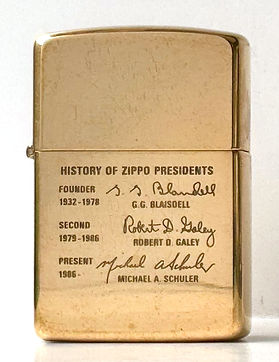 HISTORY OF ZIPPO PRESIDENTS
FOUNDER G. G. Blaisdell
1932-1978 G.G. BLAISDELL
SECOND Robert D. Galey
1979-1986 ROBERT D. GALEY
PRESENT Michael A Schuler
1986- MICHAEL A. SCHULER